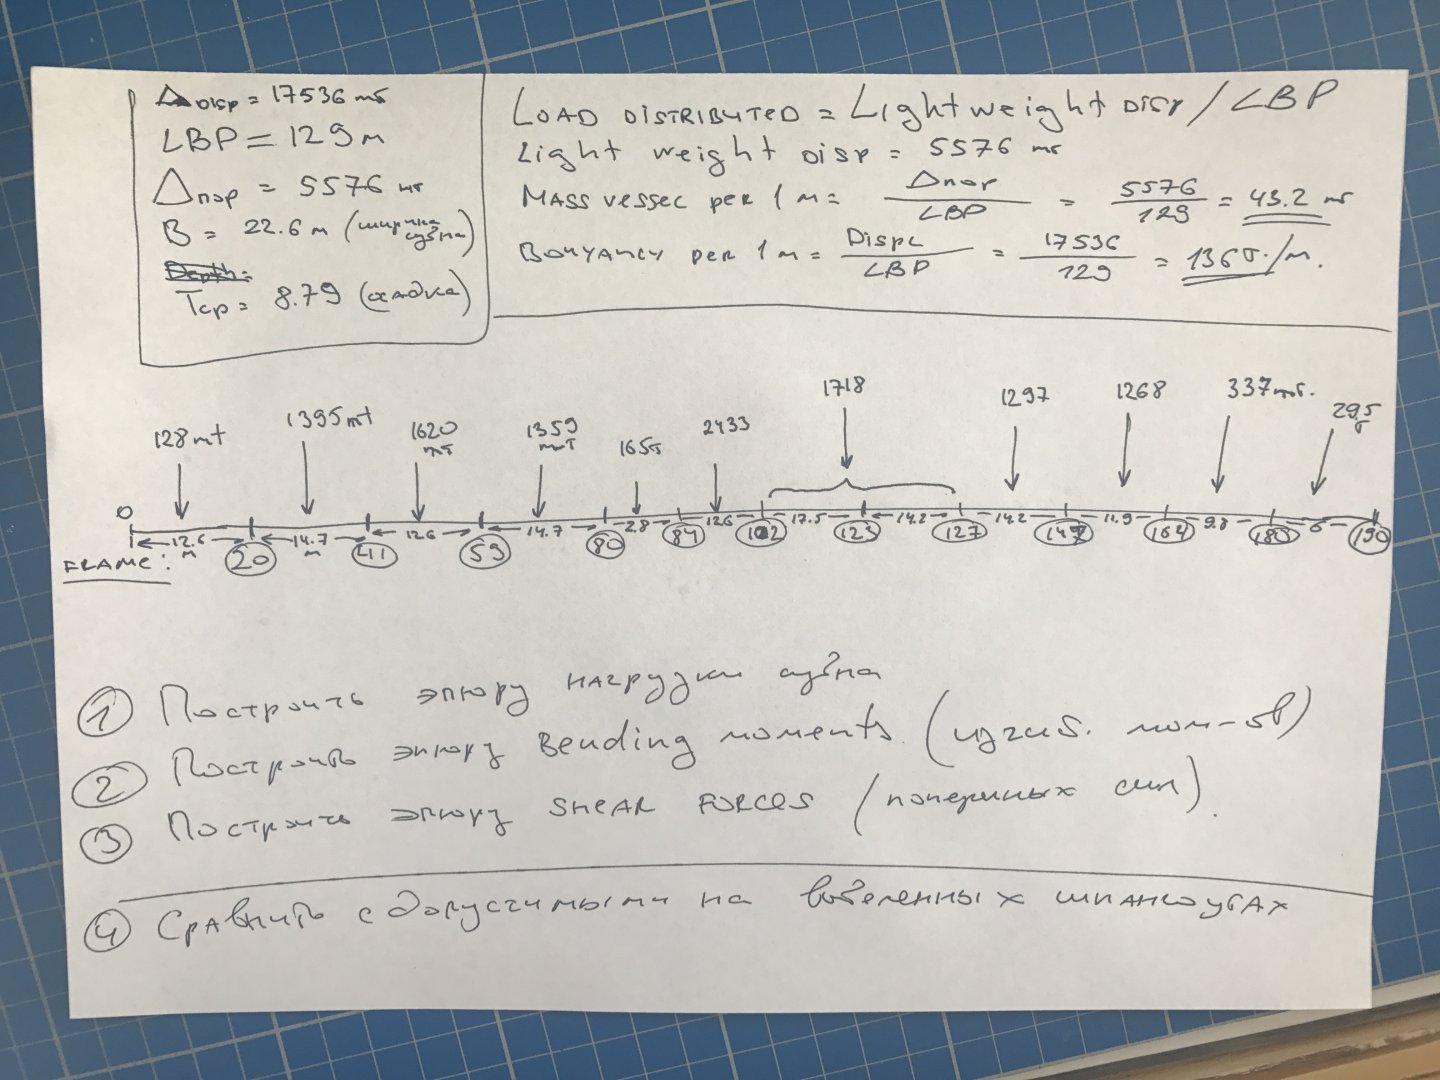 Δ DISP = 17536 mt
LBP = 129 м
Δпор = 5576 мт
B = 22.6 м (ширина судна)
Depth:
Tср = 8.79 (осадка)
LOAD DISTRIBUTED = Lightweight DISP / LBP
Light weight DISP = 5576 мт
MASS VESSEL per 1 м = Δпор / LBP = 5576 / 129 = 43.2 мт
BOUYANCY per 1 м = DISPL / LBP = 17536 / 129 = 136 т./м.
128 mt
1395 mt
1620 мт
1359 мт
165т
2433
1718
1297
1268
337 мт.
29,5 т
0
12.6 м
14.7 м
12.6
14.7
2.8
12.6
17.5
14.2
14.2
11.9
9.8
6
FRAME:
20
41
59
80
84
102
123
127
147
164
180
190
1 Построить эпюру нагрузки судна
2 Построить эпюру Bending moments. (изгиб. мом-ов)
3 Построить эпюру SHEAR FORCES (поперечных сил).
4 Сравнить с допустимыми на выделенных шпангоутах